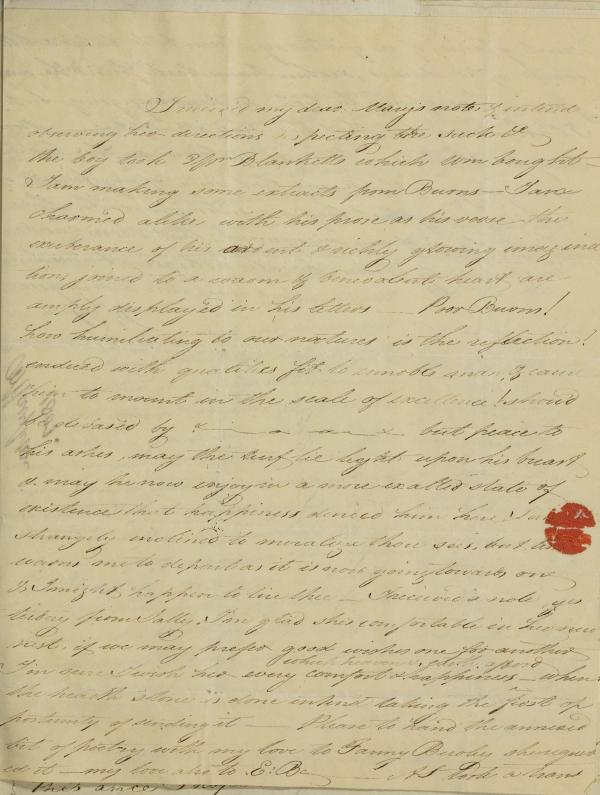 I received my dear Mary's note & intend
observing her directions respecting the sick &c
the boy took Wm Blanketts which Wm bought —
I am making some extracts from Burns — I am
charmed alike with his prose as his verse — the
exuberance of his ardent & richly glowing imagina
tion, joined to a warm & benevolent heart are
amply displayed in his letters — Poor Burns!
how humiliating to our natures is the reflection!
endued with qualities fit to ennoble man, & cause
him to mount in the scale of excellence! should
debased by x — — — x but peace to
his ashes, may the turf lie light upon his breast
& may he now enjoy in a more exalted state of
existence that happiness denied him here, I am
strangely inclined to moralize thou sees, but
warns me to depart as it is now going towards one
& I might happen to tire thee — I received a note, yes
terday from Sally, I'm glad she's comfortable in her new
nest, if we may prefer good wishes one for another
which heaven afford
I'm sure I wish her every comfort & happiness — when
the health stone is done intend taking the first op
portunity of sending it — Please to hand the annexed
bit of poetry with my love to Fanny she request
ed it — my love also to E: B — As took a trans